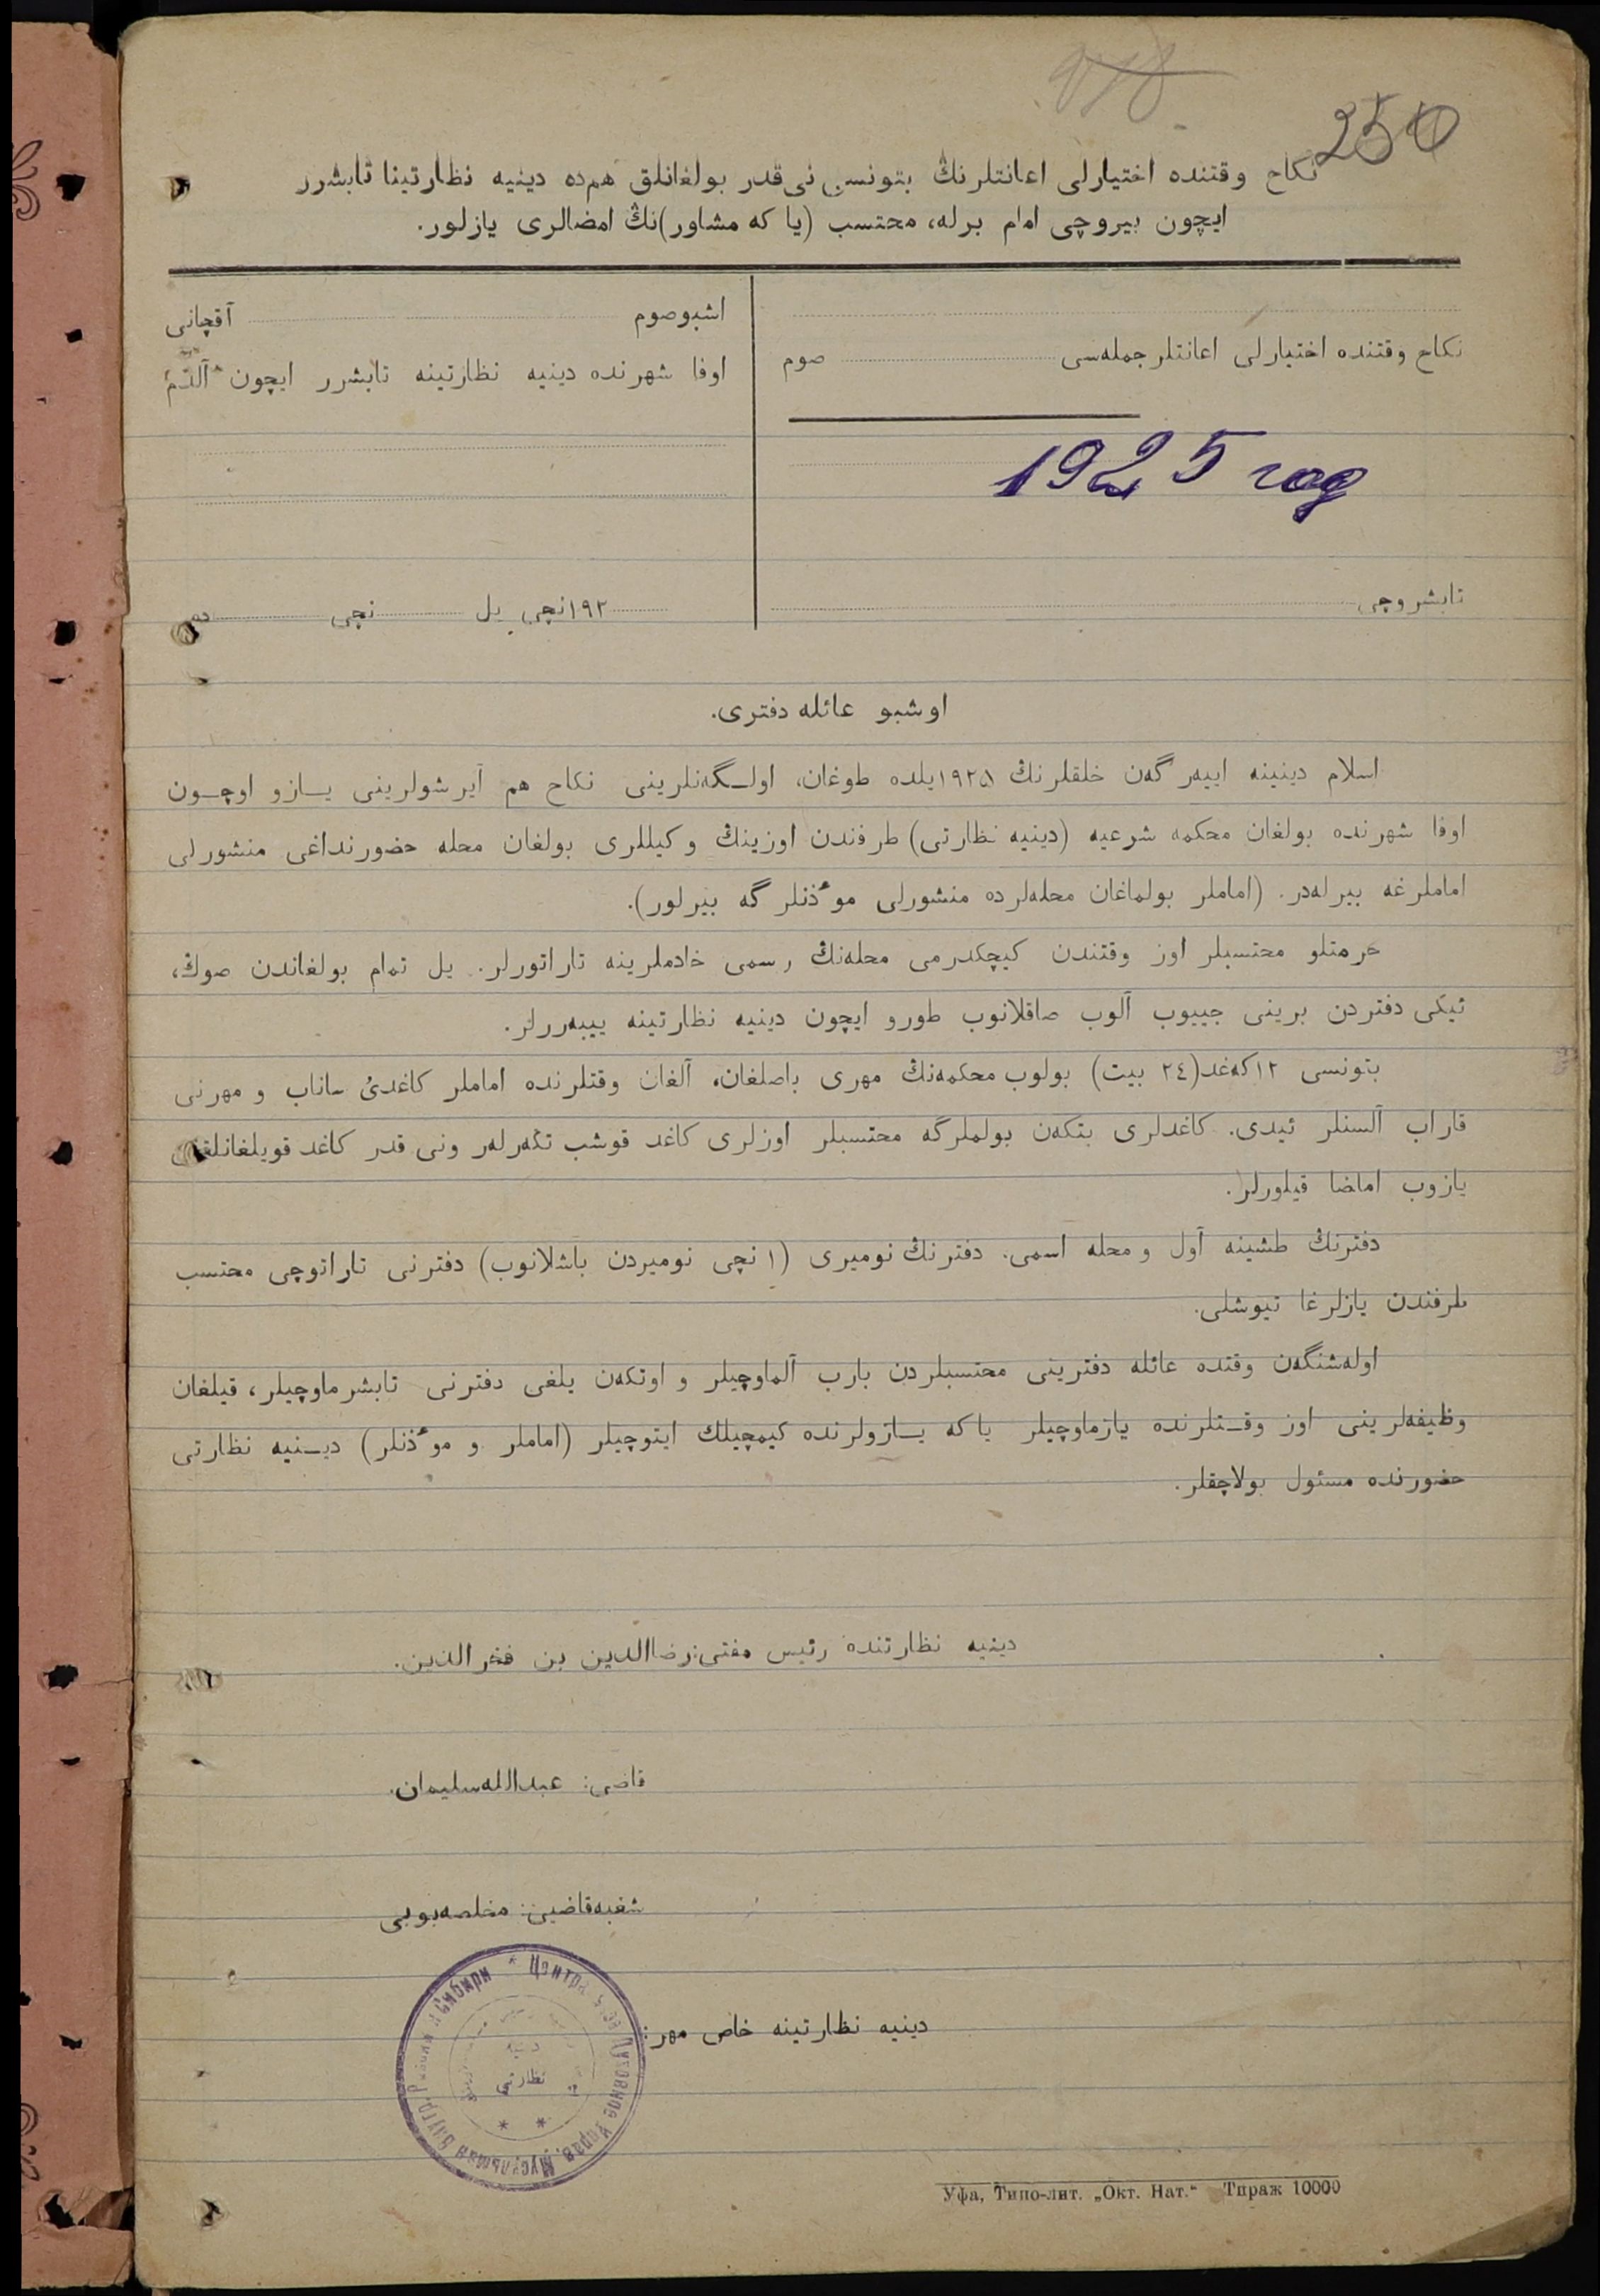 250
نكاح وقتنده اختیارلی اعانتلرنڭ بتونسی نی‌قدر بولغانلق هم‌ده دینیه نظارتینا تابشرر
ایچون بیروچی امام برله، محتسب (یا که مشاور)نڭ امضالری یازلور.
نكاح وقتنده اختیارلی اعانتلر جمله‌سی صوم
1925 год
تابشروچی
اشبو صوم آقچانی
اوفا شهرنده دینیه نظارتینه تابشرر ایچون آلدم
۱۹۲ نچی یل نچی ده
اوشبو عائله دفتری.
اسلام دینینه اییه‌رگه‌ن خلقلرنڭ ۱۹۲۵ یلده طوغان، اولـگه‌نلرینی نكاح هم آیرشولرینی یـازو اوچـون
اوفا شهرنده بولغان محكمه شرعیه (دینیه نظارتی) طرفندن اوزینڭ وكیللری بولغان محله حضورنداغی منشورلی
اماملرغه بیرله‌در. (اماملر بولماغان محله‌لرده منشورلی موٴذنلرگه بیرلور).
حرمتلو محتسبلر اوز وقتندن كیچكدرمی محله‌نڭ رسمی خادملرینه تاراتورلر. یل تمام بولغاندن صوڭ،
ئیكی دفتردن برینی جییوب آلوب صاقلانوب طورو ایچون دینیه نظارتینه ییبه‌ررلر.
بتونسی ۱۲ كه‌غد (۲٤ بیت) بولوب محكمه‌نڭ مهری باصلغان. آلغان وقتلرنده اماملر كاغدیٔ ساناب و مهرنی
قاراب آلسنلر ئیدی. كاغدلری بتكه‌ن بولملرگه محتسبلر اوزلری كاغد قوشب تكه‌رله‌ر ونی قدر كاغد قویلغانلقنی
یازوب امضا قیلورلر.
دفترنڭ طشینه آول و محله اسمی. دفترنڭ نومیری (۱ نچی نومیردن باشلانوب) دفترنی تاراتوچی محتسب
طرفندن یازلرغا تیوشلی.
اوله‌شنگه‌ن وقتده عائله دفترینی محتسبلردن بارب آلماوچیلر و اوتكه‌ن یلغی دفترنی تابشرماوچیلر، قیلغان
وظیفه‌لرینی اوز وقـتلرنده یازماوچیلر یا كه یـازولرنده كیمچیلك ایتوچیلر (اماملر و موٴذنلر) دیـنیه نظارتی
حضورنده مسئول بولاچقلر.
دینیه نظارتنده رئیس مفتی: رضاالدین بن فخرالدین.
قاضی: عبدالله سلیمان.
شعبه قاضیی: مخلصه بوبی
دینیه نظارتینه خاص مهر:
Уфа, Типо-лит. „Окт. Нат.“ Тираж 10000